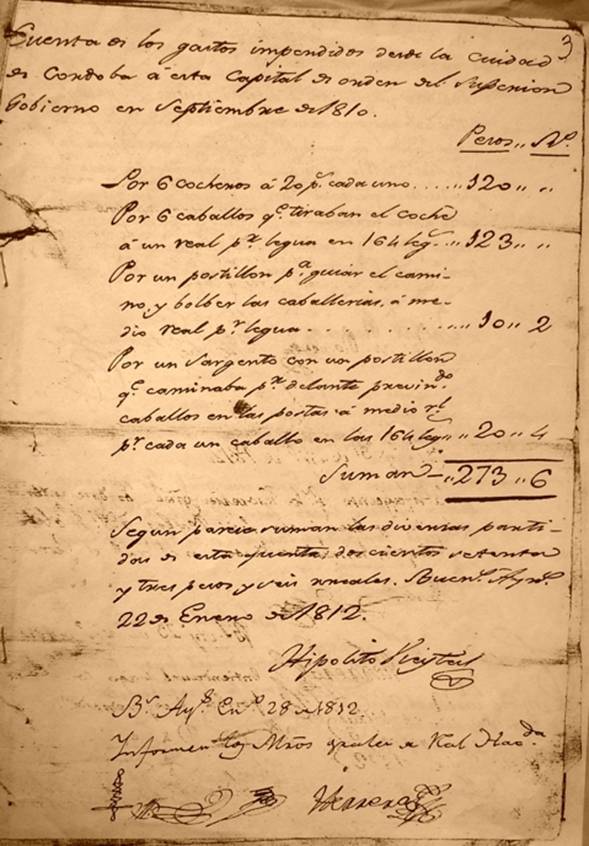 3
Cuenta de los gastos impendidos desde la ciudad
de Cordoba á esta Capital de orden del Superior
Gobierno en Septiembre de 1810.
Pesos,, Rs.
Por 6 cocheros á 20 ps. cada uno . . . . ,, 120 ,, ,,
Por 6 caballos qe. tiraban el coche
á un real pr. legua en 164 leg. . ,, 123 ,, ,,
Por un postillon pa. guiar el cami-
no, y bolber las caballerias, á me-
dio real pr. legua . . . . . . . . . . . ,, 10 ,, 2
Por un Sargento con un postillon
qe. caminaba pr. delante previndo.
caballos en las postas á medio rl.
pr. cada un caballo en las 164 legs. ,, 20 ,, 4
Suman - ,, 273 ,, 6
Segun parece suman las diversas parti-
das de esta quenta, doscientos setenta
y tres pesos y seis rreales. Buens. Ayrs.
22 de Enero de 1812.
Hipolito Vieytes
Bs. Ays. Eno. 28 de 1812
Informen los Mros grales de Ral Hacda.
Herrera